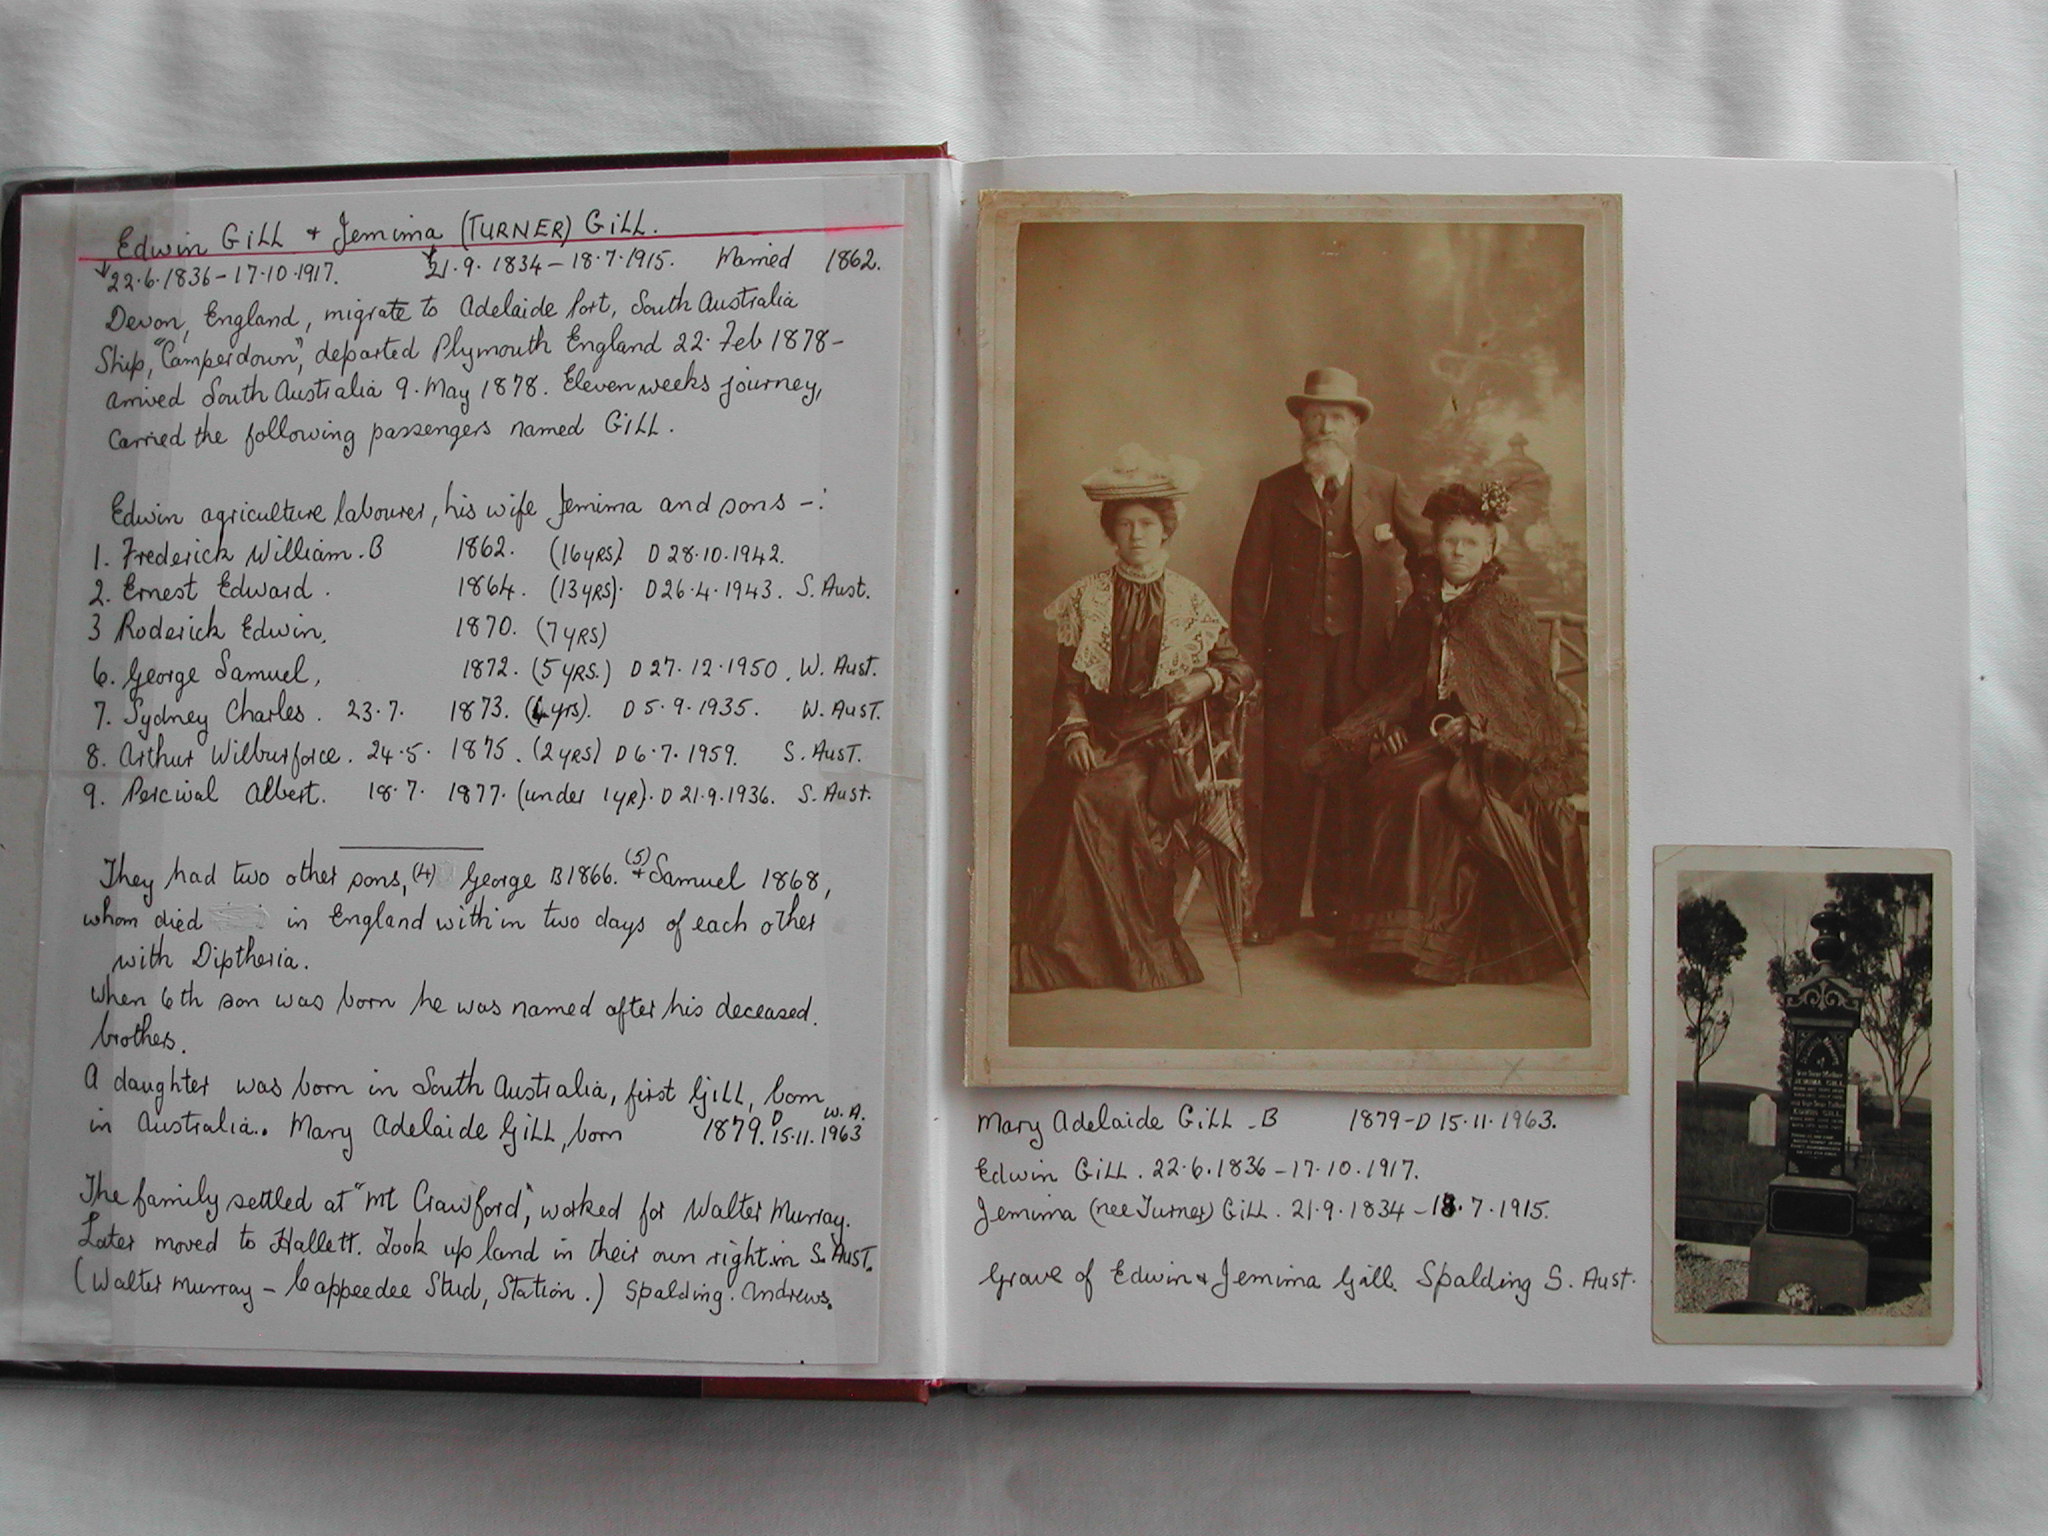 Edwin GiLL + Jemima (TURNER) GiLL.
22.6.1836 - 17.10.1917. 21.9.1834 - 18.7.1915. Married 1862.
Devon, England, migrate to Adelaide Port, South Australia
Ship, "Camperdown", departed Plymouth England 22. Feb 1878 -
arrived South Australia 9. May 1878. Eleven weeks journey,
Carried the following passengers named GiLL.
Edwin agriculture labourer, his wife Jemima and sons -:
1. Frederick William. B 1862. (16 YRS) D 28.10.1942.
2. Ernest Edward. 1864. (13 YRS). D 26.4.1943. S. Aust.
3 Roderick Edwin. 1870. (7 YRS)
6. George Samuel, 1872. (5 YRS.) D 27.12.1950. W. Aust.
7. Sydney Charles. 23.7. 1873. (4 yrs). D 5.9.1935. W. AusT.
8. Arthur Wilburforce. 24.5. 1875. (2 YRS) D 6.7.1959. S. AusT.
9. Percival Albert. 18.7. 1877. (under 1 YR). D 21.9.1936. S. Aust.
They had two other sons, (4) George B 1866. (5) + Samuel 1868,
whom died in England within two days of each other
with Diptheria.
When 6th son was born he was named after his deceased.
brothers.
A daughter was born in South Australia, first GiLL, born
in Australia.. Mary Adelaide GiLL, born 1879. D 15.11.1963 W.A.
The family settled at "Mt Crawford", worked for Walter Murray.
Later moved to Hallett. Took up land in their own right in S. AusT.
(Walter Murray - Cappeedee Stud, Station.) Spalding. Andrews.
Mary Adelaide GiLL - B 1879 - D 15.11.1963.
Edwin GiLL. 22.6.1836 - 17.10.1917.
Jemima (nee Turner) GiLL. 21.9.1834 - 18.7.1915.
Grave of Edwin + Jemima Gill. Spalding S. Aust.
JEMIMA GILL
EDWIN GILL